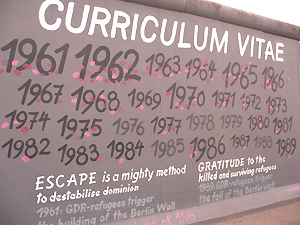 CURRICULUM VITAE
1961 1962 1963 1964 1965 1966
1967 1968 1969 1970 1971 1972 1973
1974 1975 1976 1977 1978 1979 1980 1981
1982 1983 1984 1985 1986 1987 1988 1989
ESCAPE is a mighty method
to destabilise dominion
1961: GDR-refugees trigger
the building of the Berlin Wall
GRATITUDE to the
killed and surviving refugees
1989: GDR-refugees trigger
the fall of the Berlin Wall
of 136